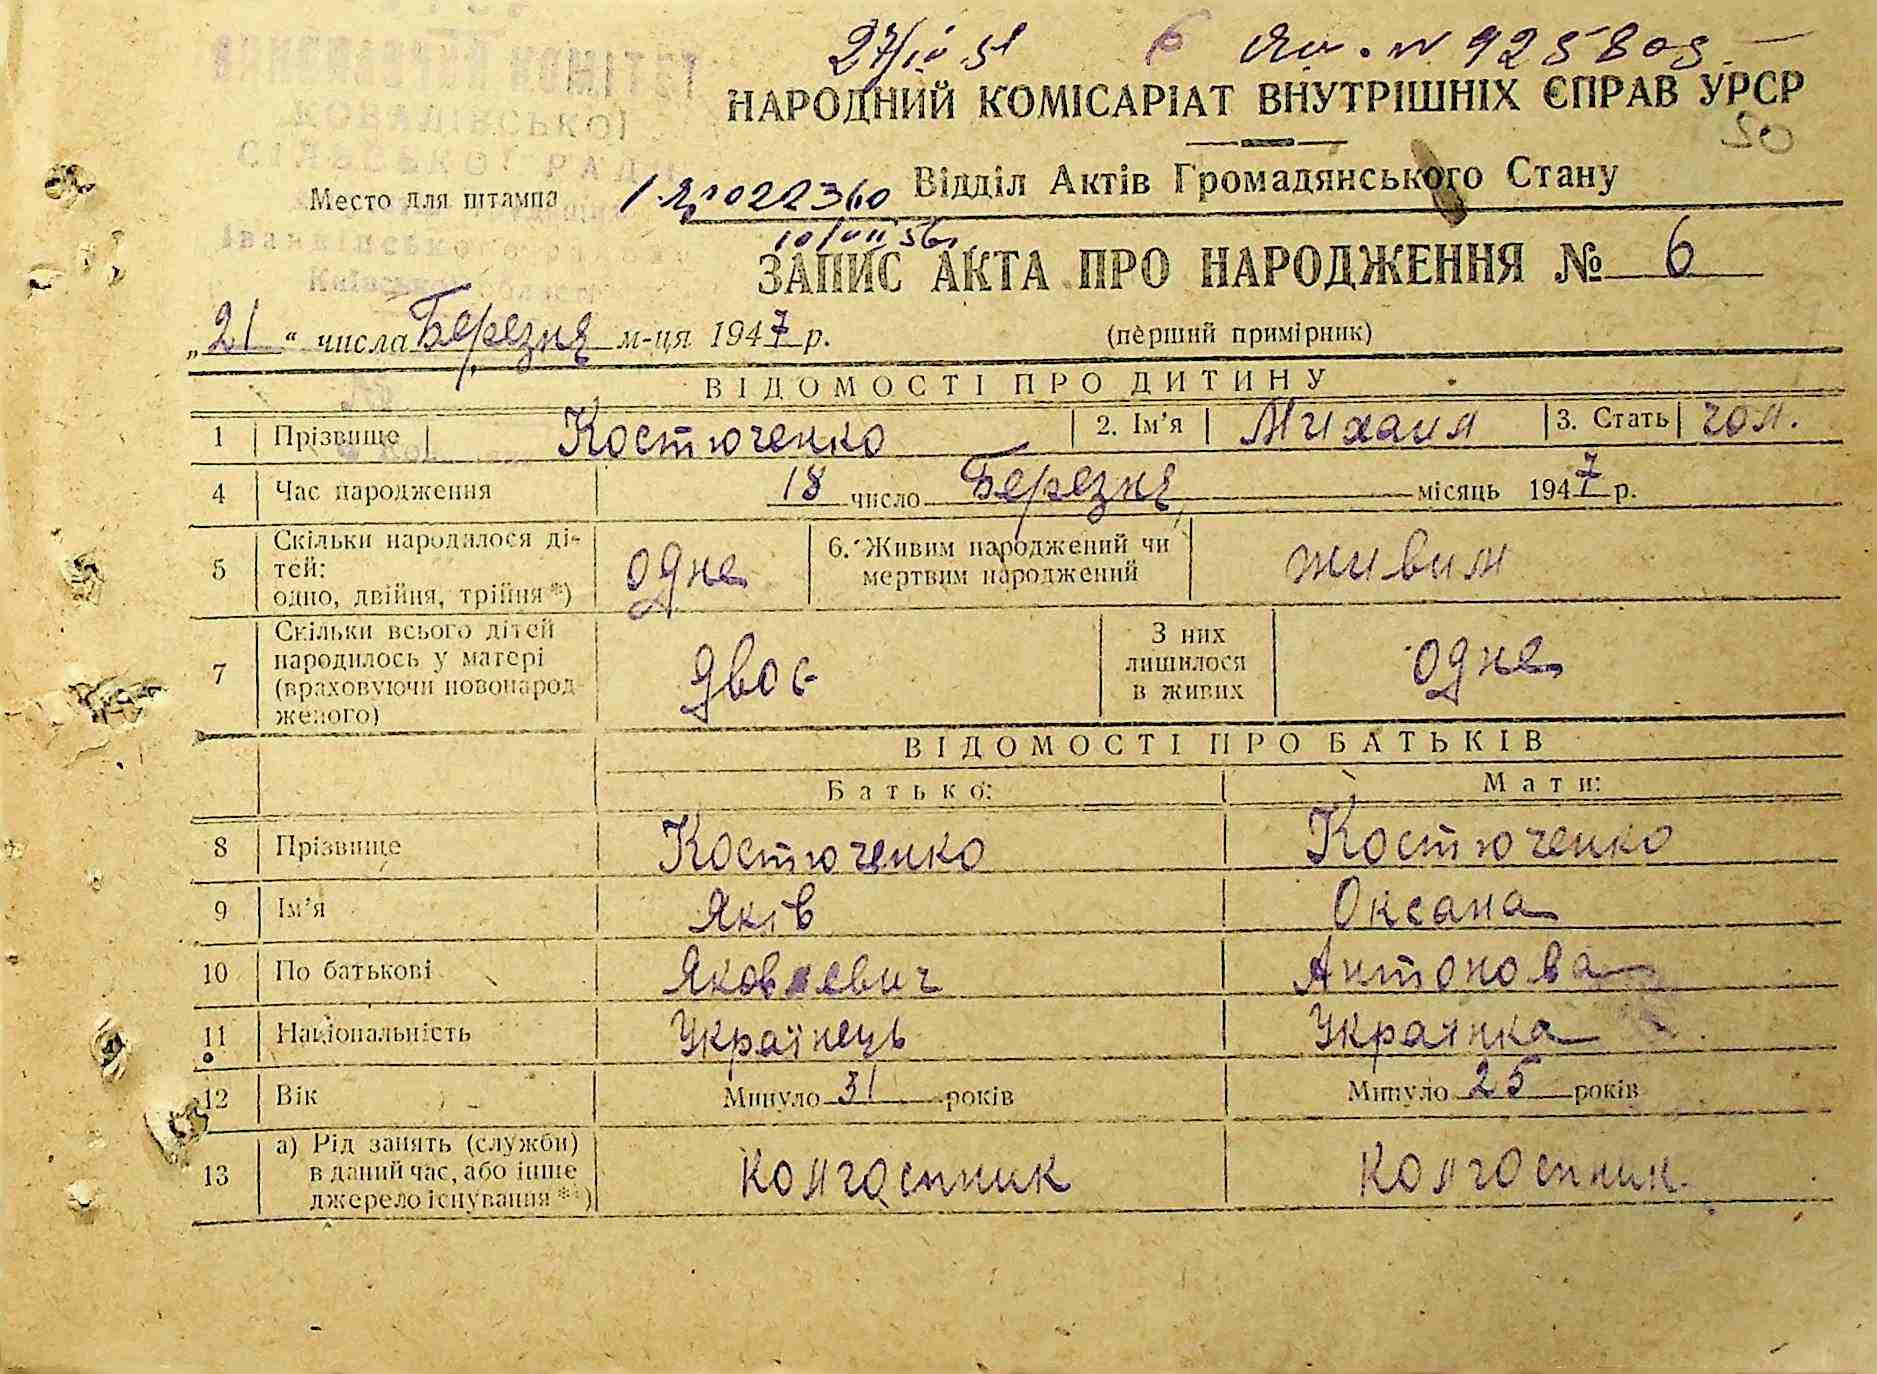 27/IV 51 6 № 925803
НАРОДНИЙ КОМІСАРІАТ ВНУТРІШНІХ ЄПРАВ УРСР
КОВАЛІВСЬКОЇ
СІЛЬСЬКОЇ РАДИ
Место для штампа
022360 Відділ Актів Громадянського Стану
10/VII 56
Іванківського району
Київської області
ЗАПИС АКТА ПРО НАРОДЖЕННЯ № 6
„21“ числа Березня м-ця 1947 р. (перший примірник)
ВІДОМОСТІ ПРО ДИТИНУ
1 Прізвище Костюченко 2. Ім’я Михаил 3. Стать чол.
4 Час народження 18 число Березня місяць 1947 р.
5 Скільки народилося ді-
тей:
одно, двійня, трійня *) одне 6. Живим народжений чи
мертвим народжений живим
7 Скільки всього дітей
народилось у матері
(враховуючи новонарод-
женого) двоє З них
лишилося
в живих одне
ВІДОМОСТІ ПРО БАТЬКІВ
Батько: Мати:
8 Прізвище Костюченко Костюченко
9 Ім’я Яків Оксана
10 По батькові Яковлевич Антонова
11 Національність Українець Українка
12 Вік Минуло 31 років Минуло 25 років
13 а) Рід занять (служби)
в даний час, або інше
джерело існування **) колгоспник колгоспник